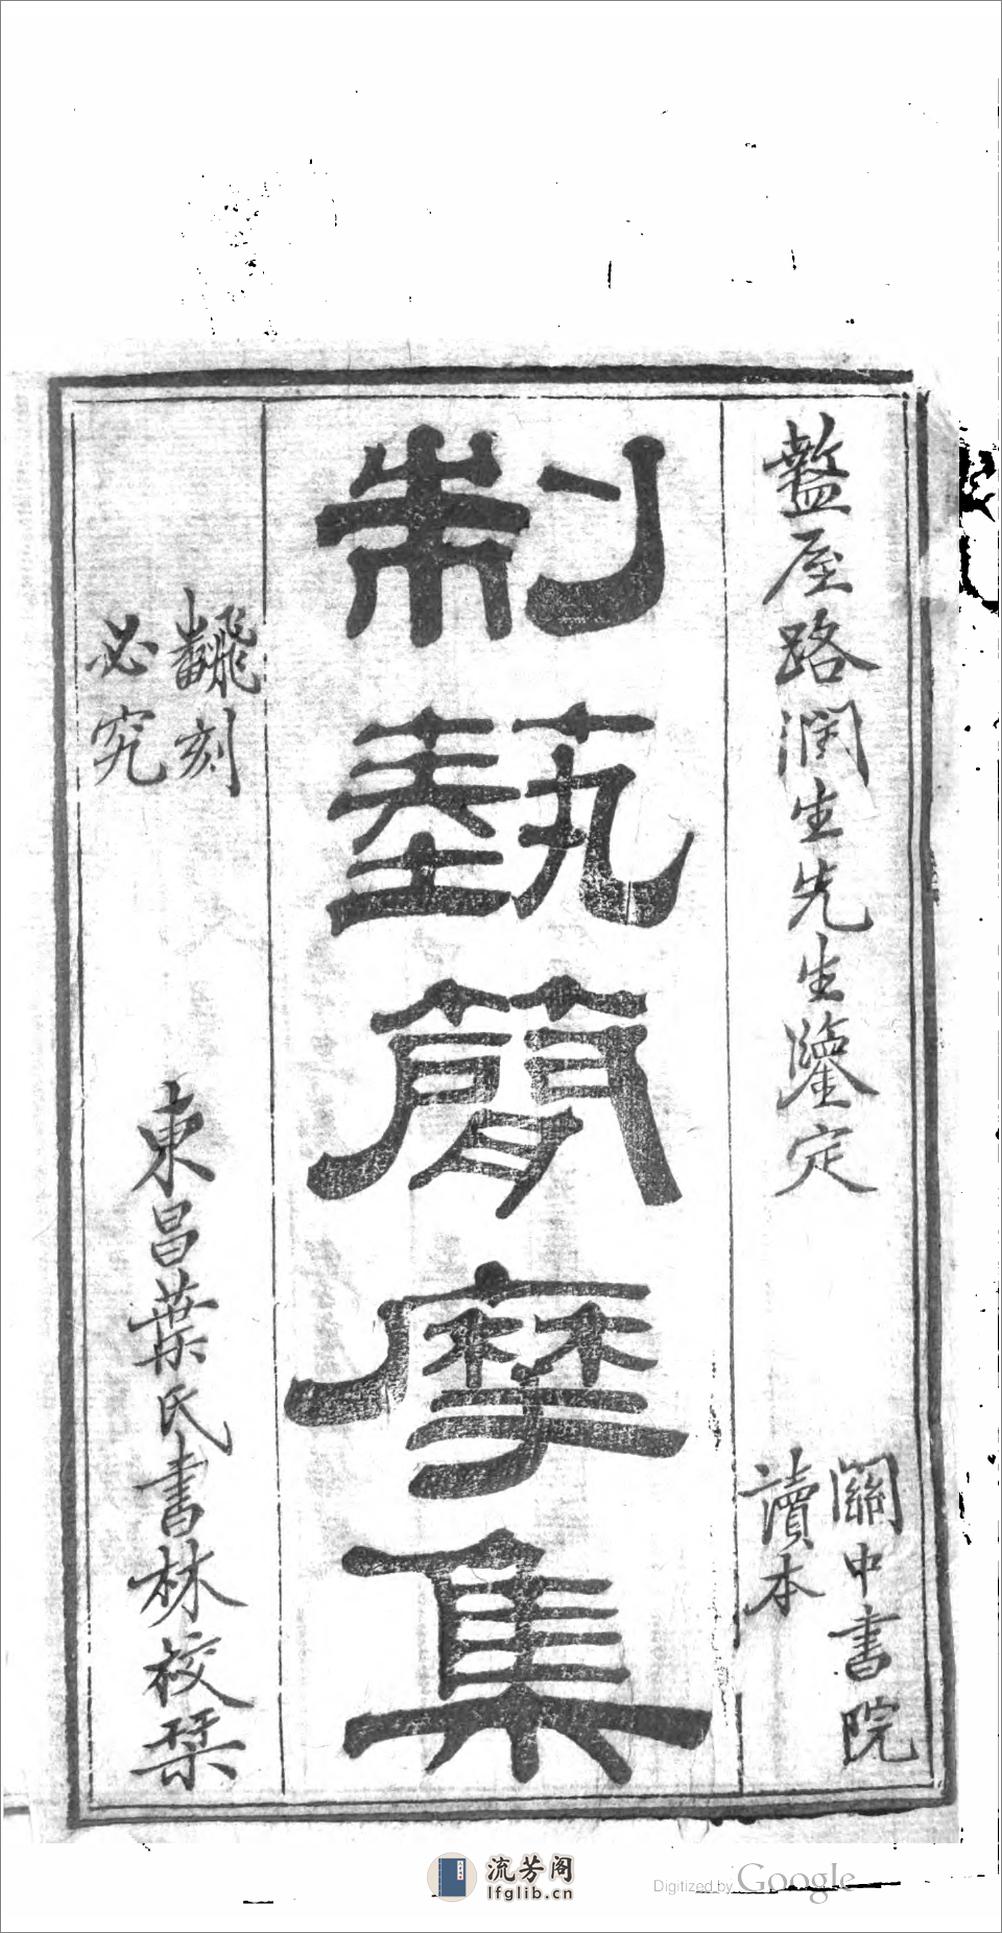 盩厔路潤生先生鑒定
關中書院
讀本
制藝簡摩集
飜刻
必究
東昌葉氏書林校栞
流芳阁
lfglib.cn
Digitized by Google